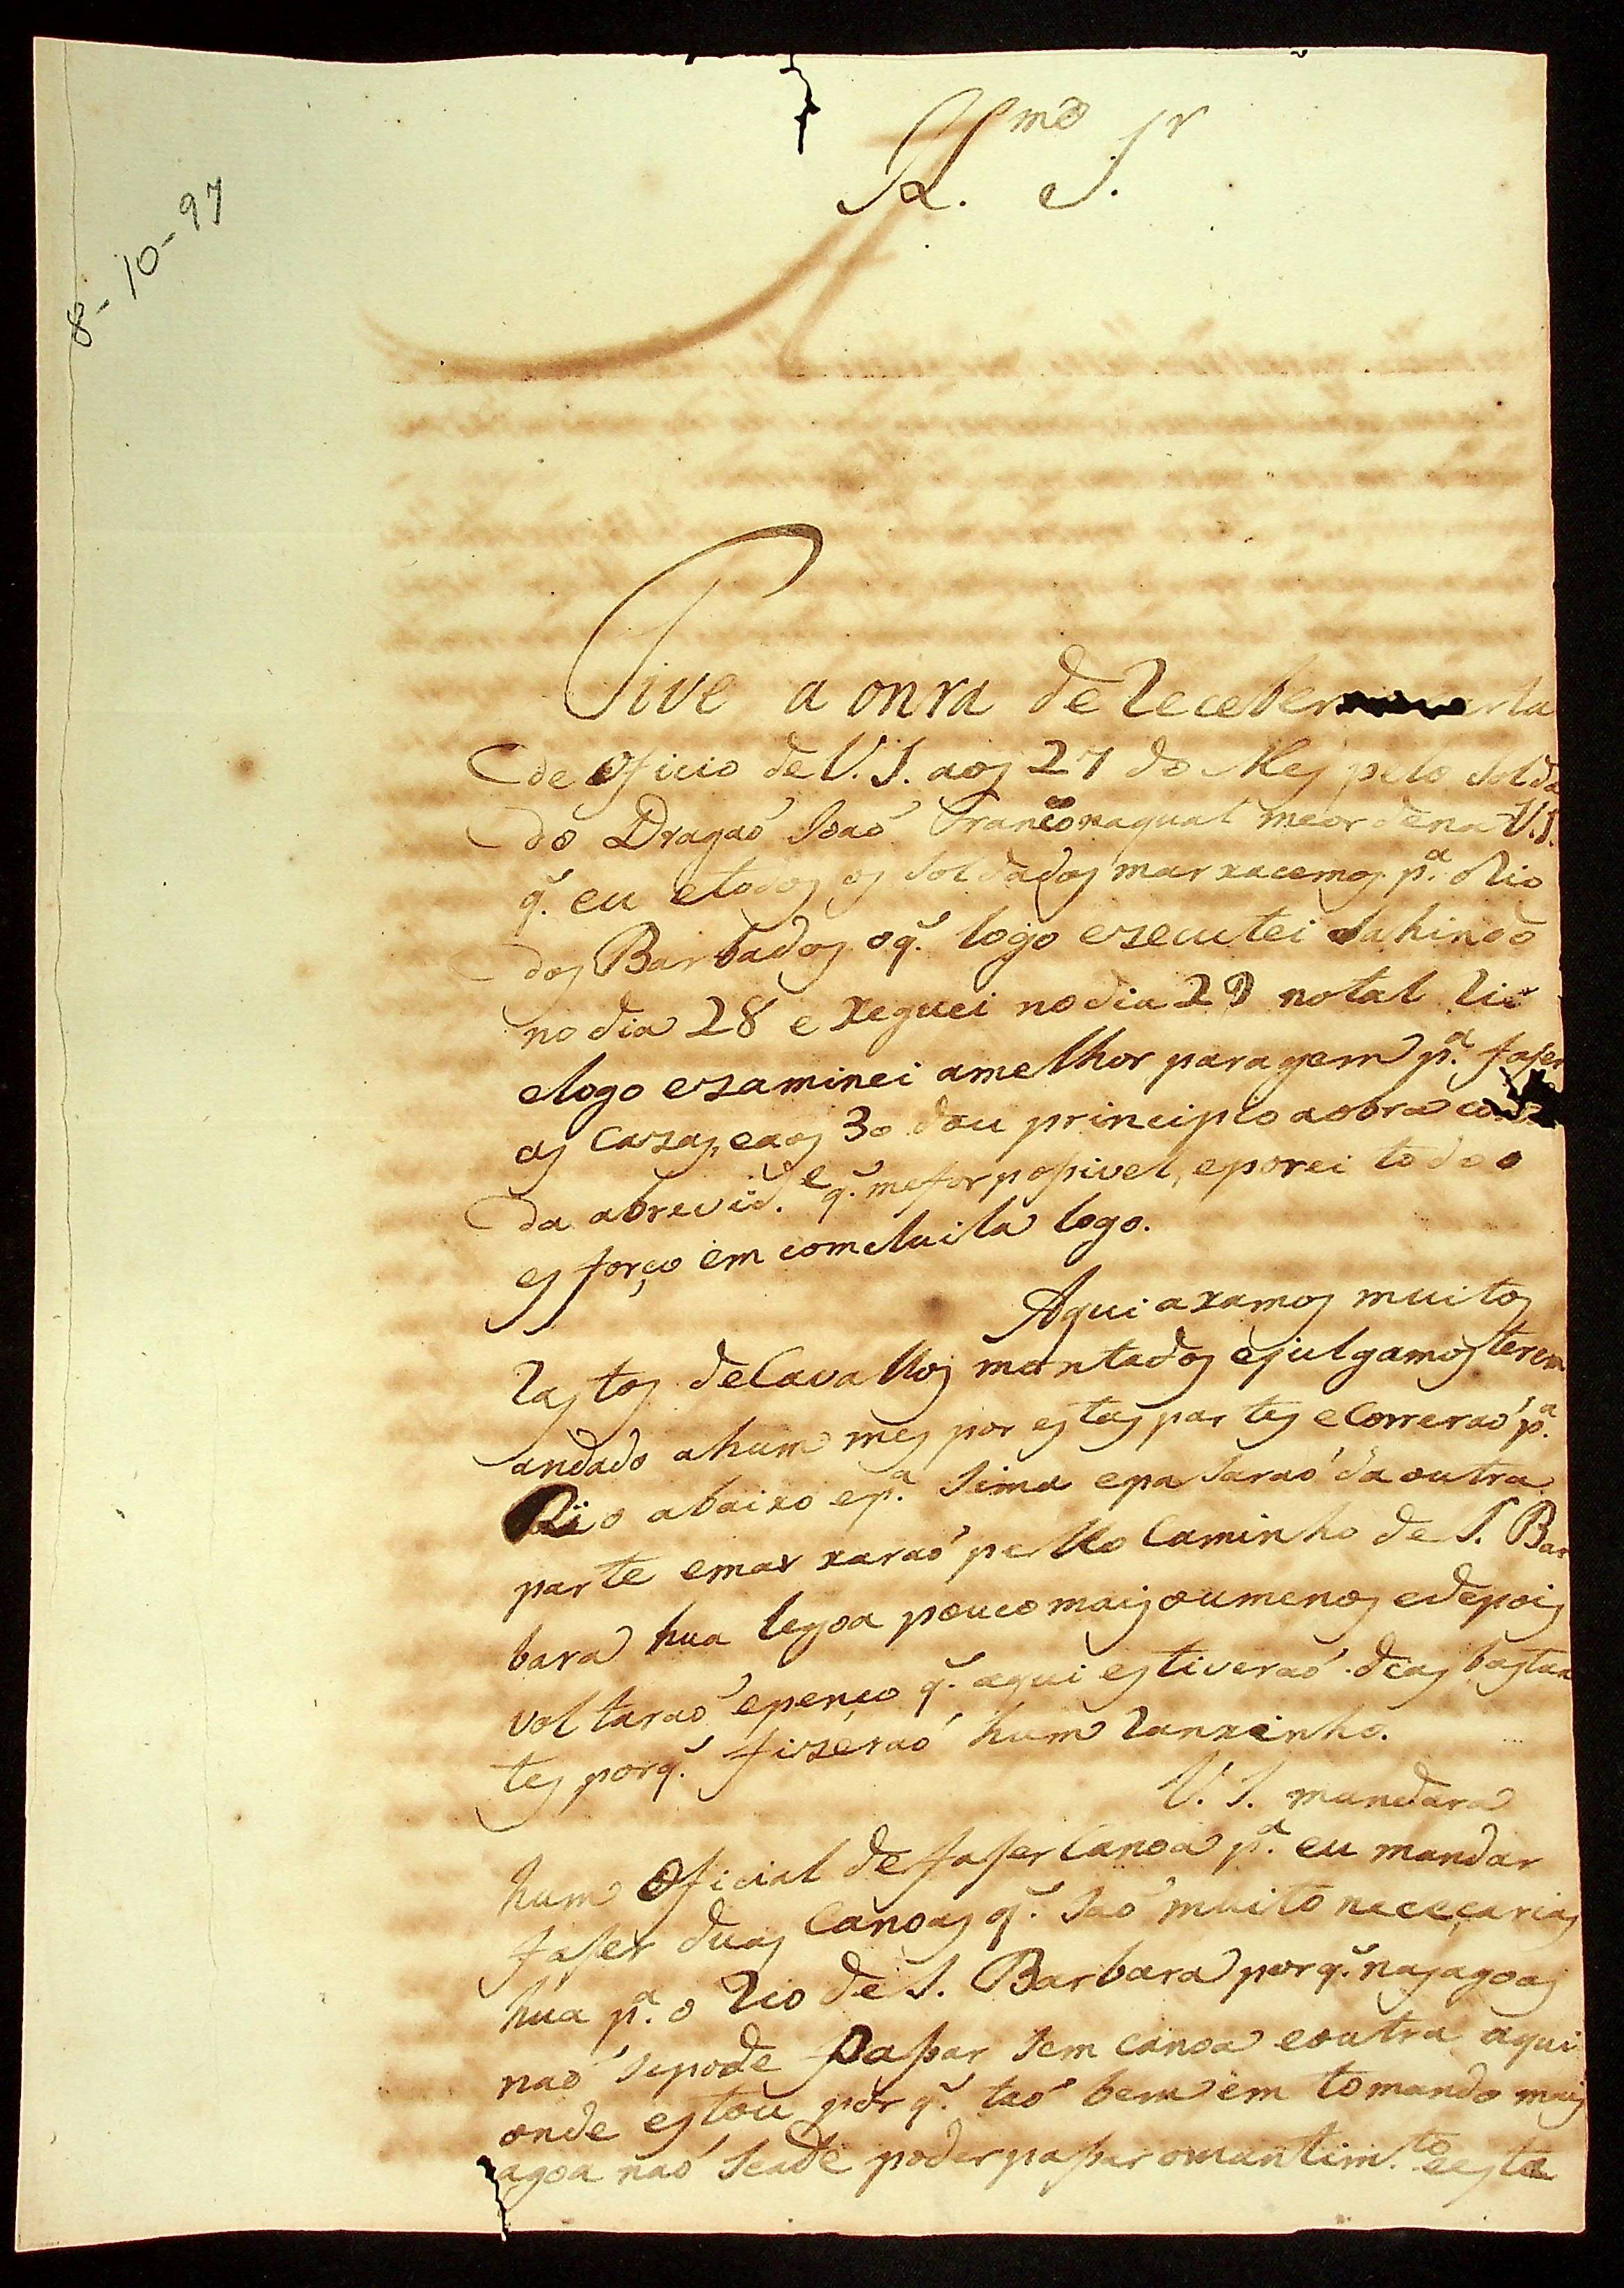 8-10-97
Ill.mo S.r
Tive a onra de receber
de oficio de V. S. aos 27 do Mes pelo Solda
do Dragaõ Joaõ Fran.co naqual meordena V. S.
q. eu etodos os Soldados marxacemos p.a oRio
dos Barbados oq. logo ezecutei Sahindo
no dia 28 e xeguei nodia 29 notal rio
elogo ezaminei amelhor paragem p.a faser
as Cazas, eaos 30 dou principio aobra
da abrevid.e q. mefor posivel, eporei todo o
esforço em comcluila logo.
Aqui axamos muitos
rastos deCavallos montados ejulgamos terem
andado ahum mes por estas partes eCorreraõ p.a
Rio abaixo ep.a Sima epasaraõ da outra
parte emarxaraõ pello Caminho de S. Bar
bara hua legoa pouco mais oumenos edepois
voltaraõ epenço q. aqui estiveraõ dias bastan
tes porq. fizeraõ hum ranxinho.
V. S. mandara
hum Oficial de faser Canoa p.a eu mandar
faser duas Canoas q. Saõ muito nececarias
hua p.a o rio de S. Barbara porq. nasagoas
naõ Sepode Pasar Sem canoa eoutra aqui
onde estou porq. taõ bem em tomando mais
agoa naõ Seade poder pasar omantim.to eesta